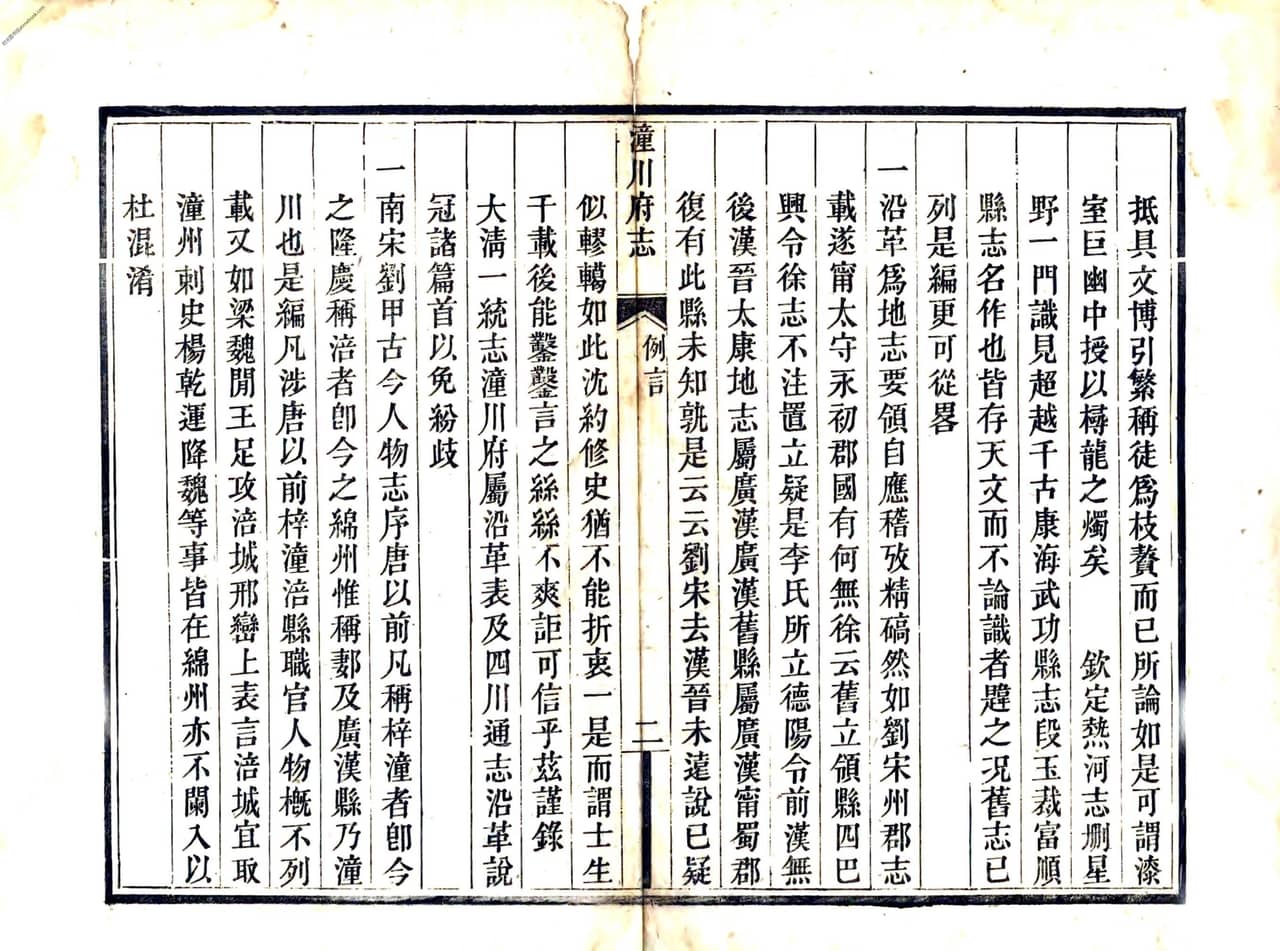 抵具文博引繁稱徒爲枝贅而已所論如是可謂漆
室巨幽中授以樽龍之燭矣　欽定熱河志删星
野一門識見超越千古康海武功縣志段玉裁富順
縣志名作也皆存天文而不論識者韙之况舊志已
列是編更可從畧
一沿革爲地志要領自應稽攷精碻然如劉宋州郡志
載遂甯太守永初郡國有何無徐云舊立領縣四巴
興令徐志不注置立疑是李氏所立德陽令前漢無
後漢晉太康地志屬廣漢廣漢舊縣屬廣漢甯蜀郡
復有此縣未知孰是云云劉宋去漢晉未遠說已疑
潼川府志
例言
二
似轇轕如此沈約修史猶不能折衷一是而謂士生
千載後能鑿鑿言之絲絲不爽詎可信乎茲謹錄
大淸一統志潼川府屬沿革表及四川通志沿革說
冠諸篇首以免紛歧
一南宋劉甲古今人物志序唐以前凡稱梓潼者卽今
之隆慶稱涪者卽今之綿州惟稱郪及廣漢縣乃潼
川也是編凡涉唐以前梓潼涪縣職官人物槪不列
載又如梁魏閒王足攻涪城邢巒上表言涪城宜取
潼州刺史楊乾運降魏等事皆在綿州亦不闌入以
杜混淆